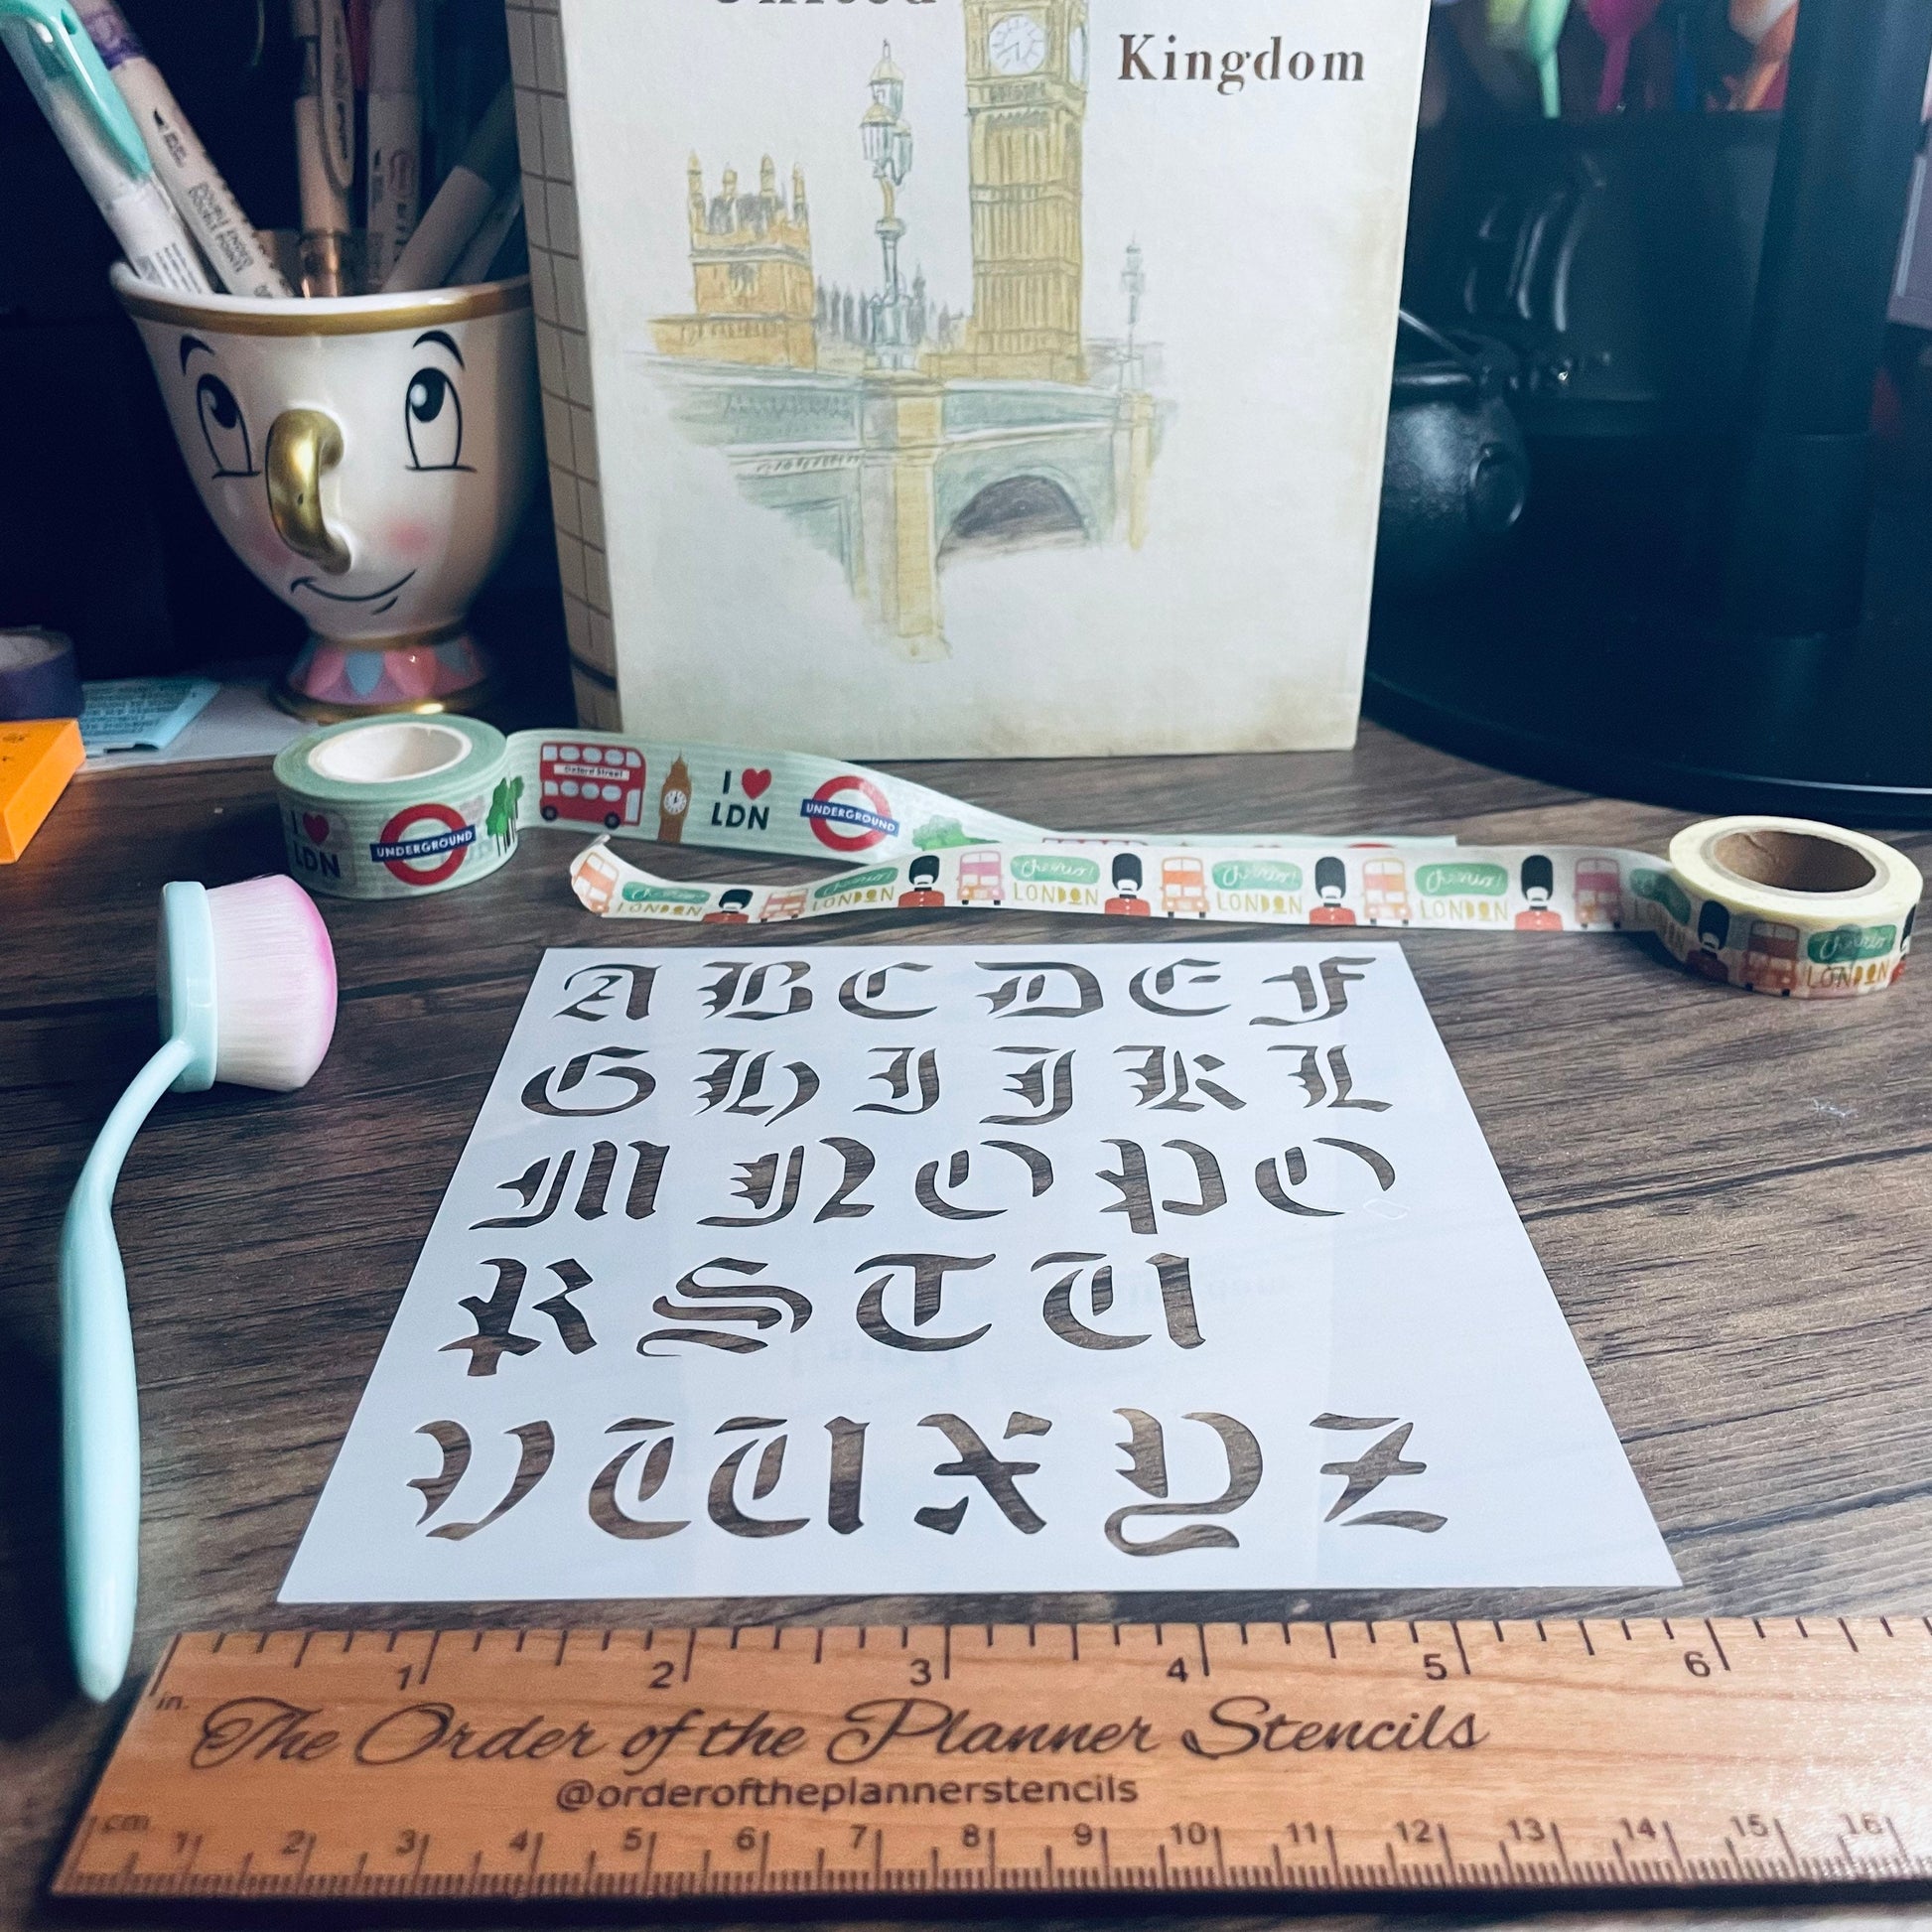 United
Kingdom
DOUBLE ENDED
Oxford Street
I ♥
LDN
UNDERGROUND
I ♥
LDN
UNDERGROUND
cheerio!
LONDON
cheerio!
LONDON
cheerio!
LONDON
cheerio!
LONDON
cheerio!
LONDON
A B C D E F
G H I J K L
M N O P O
R S T U
V W X Y Z
1 2 3 4 5 6
in.
The Order of the Planner Stencils
@orderoftheplannerstencils
cm 1 2 3 4 5 6 7 8 9 10 11 12 13 14 15 16